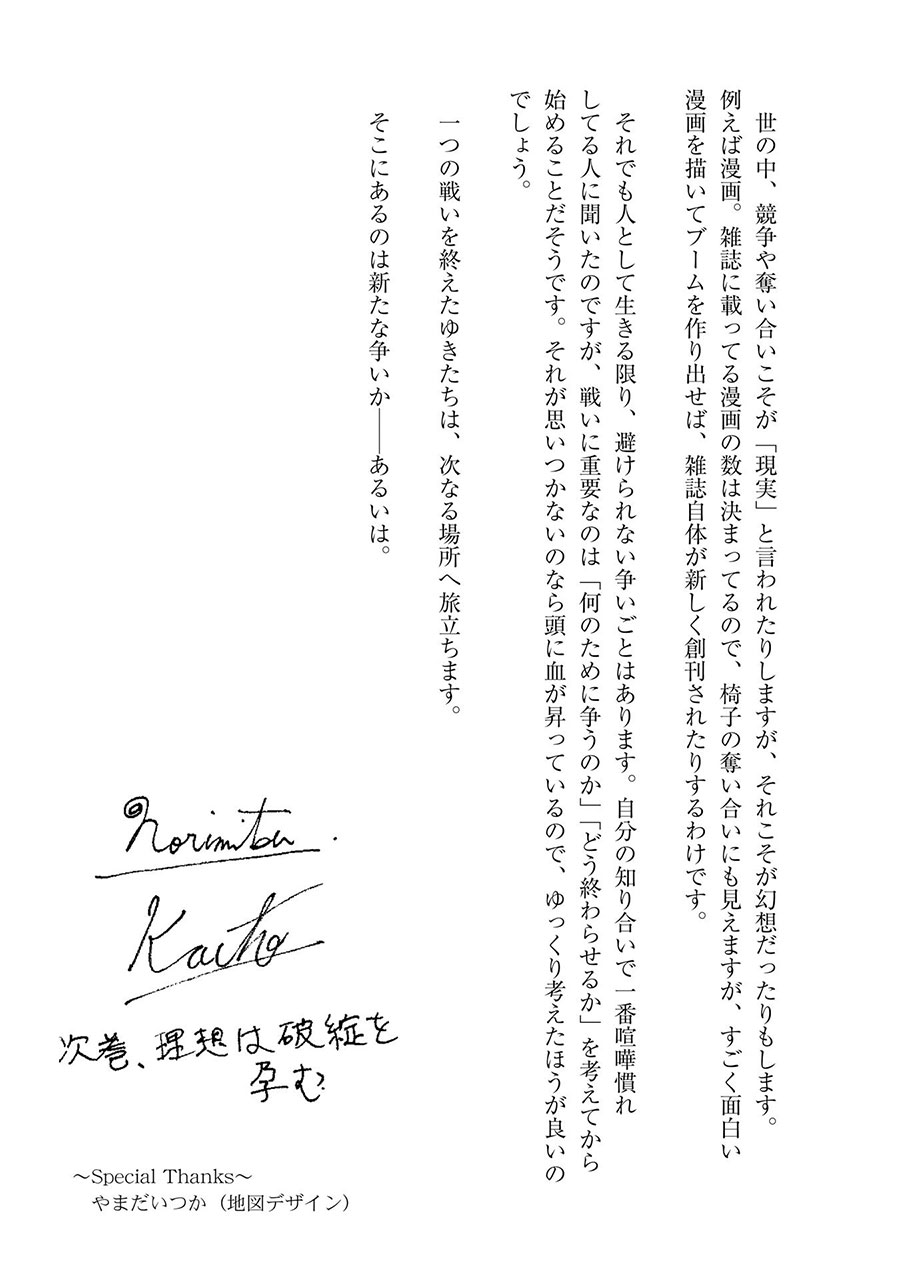 世の中、競争や奪い合いこそが「現実」と言われたりしますが、それこそが幻想だったりもします。
例えば漫画。雑誌に載ってる漫画の数は決まってるので、椅子の奪い合いにも見えますが、すごく面白い
漫画を描いてブームを作り出せば、雑誌自体が新しく創刊されたりするわけです。
それでも人として生きる限り、避けられない争いごとはあります。自分の知り合いで一番喧嘩慣れ
してる人に聞いたのですが、戦いに重要なのは「何のために争うのか」「どう終わらせるか」を考えてから
始めることだそうです。それが思いつかないのなら頭に血が昇っているので、ゆっくり考えたほうが良いの
でしょう。
一つの戦いを終えたゆきたちは、次なる場所へ旅立ちます。
そこにあるのは新たな争いか――あるいは。
Norimitsu
Kaiho
次巻、理想は破綻を
孕む
〜Special Thanks〜
やまだいつか（地図デザイン）